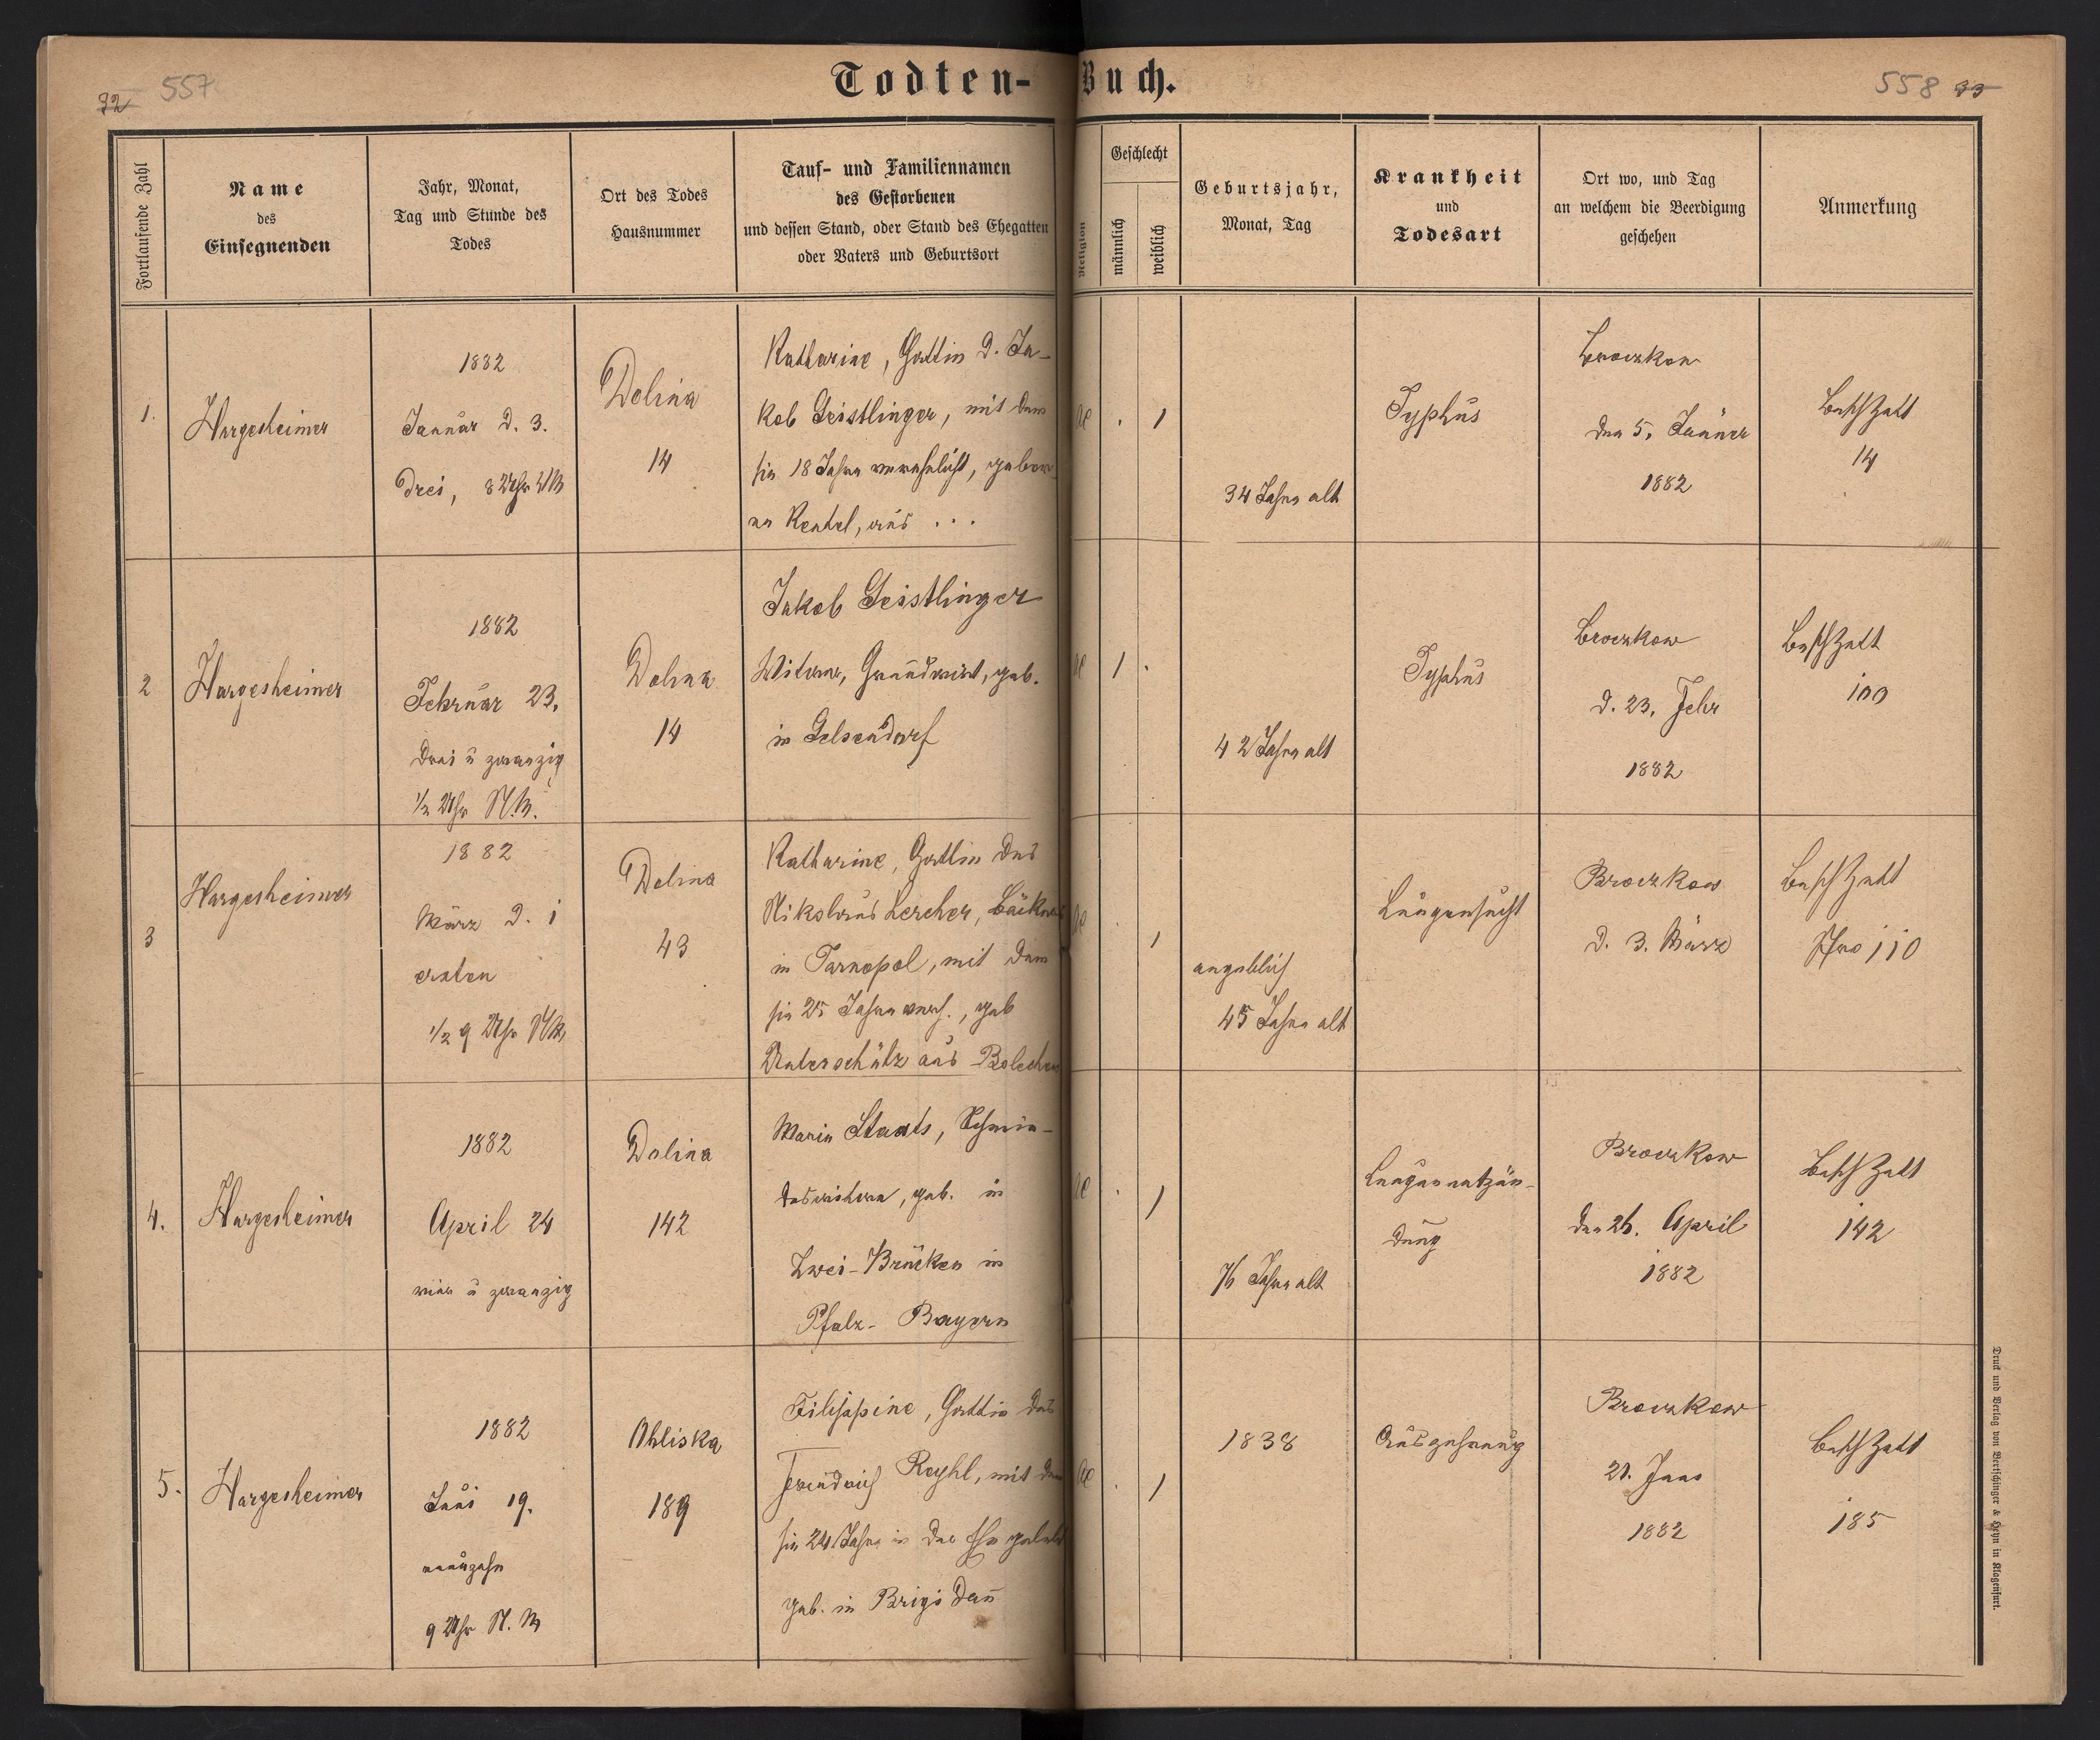 Todten-Buch.
32 557
558 33
Fortlaufende Zahl
Name
des
Einsegnenden
Jahr, Monat,
Tag und Stunde des
Todes
Ort des Todes
Hausnummer
Tauf- und Familiennamen
des Gestorbenen
und dessen Stand, oder Stand des Ehegatten
oder Vaters und Geburtsort
Religion
Geschlecht
männlich
weiblich
Geburtsjahr,
Monat, Tag
Krankheit
und
Todesart
Ort wo, und Tag
an welchem die Beerdigung
geschehen
Anmerkung
1.
Hargesheimer
1882
Januar d. 3.
drei, 8 Uhr VM
Dolina
14
Katharine, Gattin d. Ja-
kob Geistlinger, mit dem
sie 18 Jahre verehelicht, gebor
ne Rentel, aus ...
1
34 Jahre alt
Typhus
Broczkow
den 5. Jänner
1882
BeschZett
14
2
Hargesheimer
1882
Februar 23.
drei u zwanzig
1/2 Uhr N.M.
Dolina
14
Jakob Geistlinger
Witwer, Grundwirt, geb.
in Gelsendorf
1
42 Jahre alt
Typhus
Broczkow
d. 23. Febr
1882
BeschZett
100
3
Hargesheimer
1882
März d. 1
ersten
1/2 9 Uhr NM
Dolina
43
Katharine, Gattin des
Nikolaus Lercher, Bäckers
in Tarnopol, mit dem
sie 25 Jahre vereh., geb
Unterschütz aus Bolechow
1
angeblich
45 Jahre alt
Lungensucht
Broczkow
d. 3. März
BeschZett
Nro 110
4.
Hargesheimer
1882
April 24
vier u zwanzig
Dolina
142
Marie Staats, Schmie-
deswitwe, geb. in
Zwei-Brücken in
Pfalz-Bayern
1
76 Jahre alt
Lungenentzün-
dung
Broczkow
den 26. April
1882
BeschZett
142
5.
Hargesheimer
1882
Juni 19.
neunzehn
9 Uhr N.M
Obliska
189
Filippine, Gattin des
Friedrich Reyhl, mit dem
sie 24 Jahre in der Ehe gelebt
geb. in Brigidau
1
1838
Auszehrung
Broczkow
21. Juno
1882
BeschZett
185
Druck und Verlag von Bertschinger & Heyn in Klagenfurt.